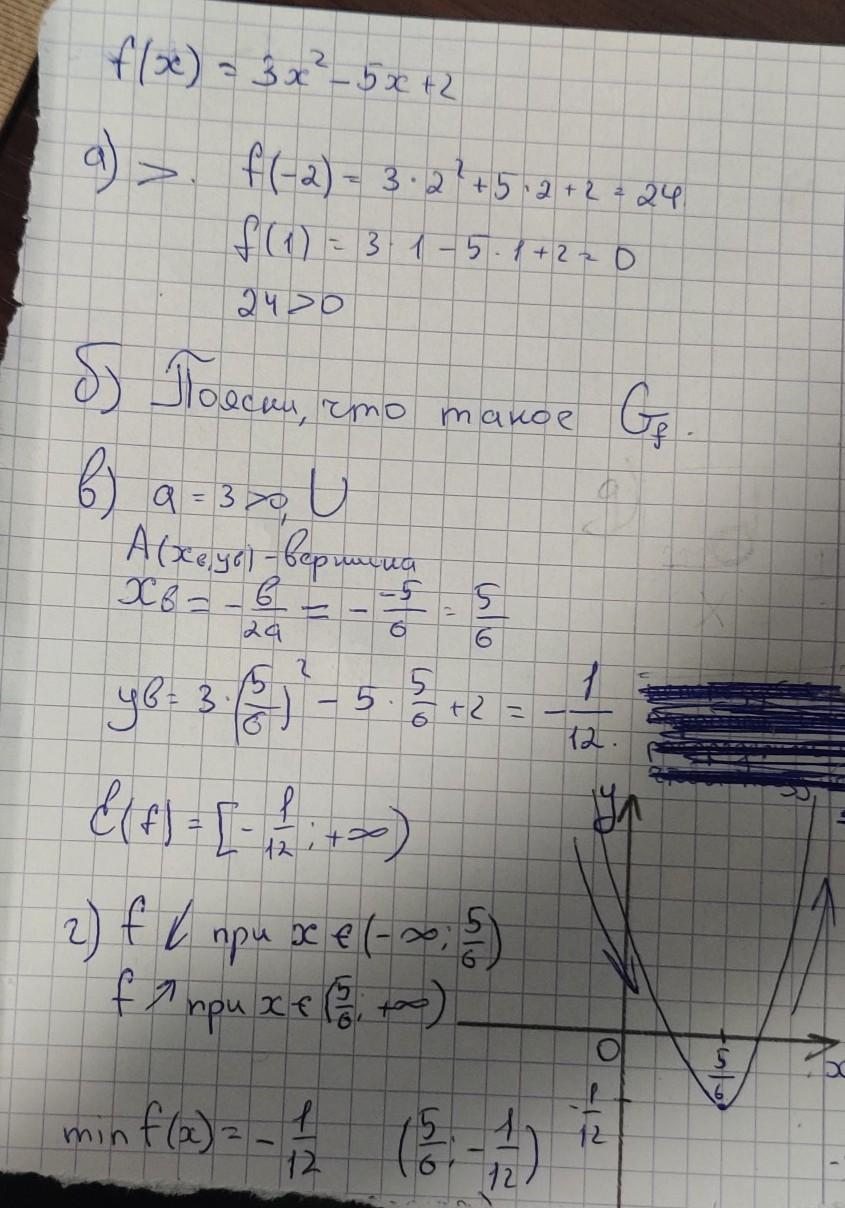 f(x) = 3x² - 5x + 2
а) >. f(-2) = 3 · 2² + 5 · 2 + 2 = 24
f(1) = 3 · 1 - 5 · 1 + 2 = 0
24 > 0
б) Поясни, что такое G_f.
в) a = 3 > 0, U
A(xв, yв) - вершина
xв = -в/2a = - -5/6 = 5/6
yв = 3 · (5/6)² - 5 · 5/6 + 2 = -1/12.
E(f) = [-1/12; +∞)
г) f ↙ при x ∈ (-∞; 5/6)
f ↗ при x ∈ (5/6; +∞)
min f(x) = -1/12 (5/6; -1/12)
y
0
5/6
x
-1/12